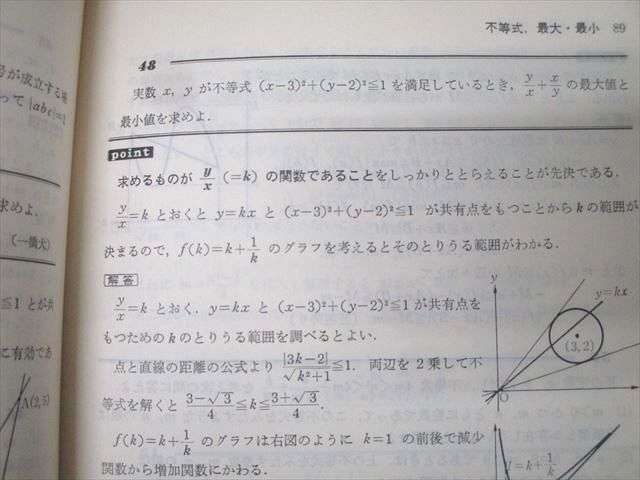 不等式，最大・最小 89
48
実数 x，y が不等式 (x−3)²+(y−2)²≦1 を満足しているとき，y/x+x/y の最大値と
最小値を求めよ．
point
求めるものが y/x (=k) の関数であることをしっかりととらえることが先決である．
y/x=k とおくと y=kx と (x−3)²+(y−2)²≦1 が共有点をもつことからkの範囲が
決まるので，f(k)=k+1/k のグラフを考えるとそのとりうる範囲がわかる．
解答
y/x=k とおく．y=kx と (x−3)²+(y−2)²≦1が共有点を
もつための k のとりうる範囲を調べるとよい．
点と直線の距離の公式より |3k−2|/√k²+1≦1．両辺を2乗して不
等式を解くと 3−√3/4≦k≦3+√3/4
f(k)=k+1/k のグラフは右図のように k=1 の前後で減少
関数から増加関数にかわる．
y
y=kx
(3,2)
O
y
=k+1/k
号が成立する場
って |abc|=1
求めよ．
(一橋大)
≦1 とが共
に有効であ
A(2,5)